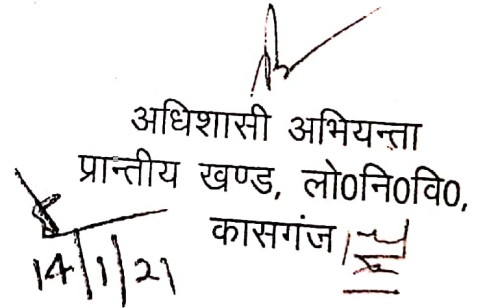 अधिशासी अभियन्ता
प्रान्तीय खण्ड, लो0नि0वि0,
कासगंज
14/1/21